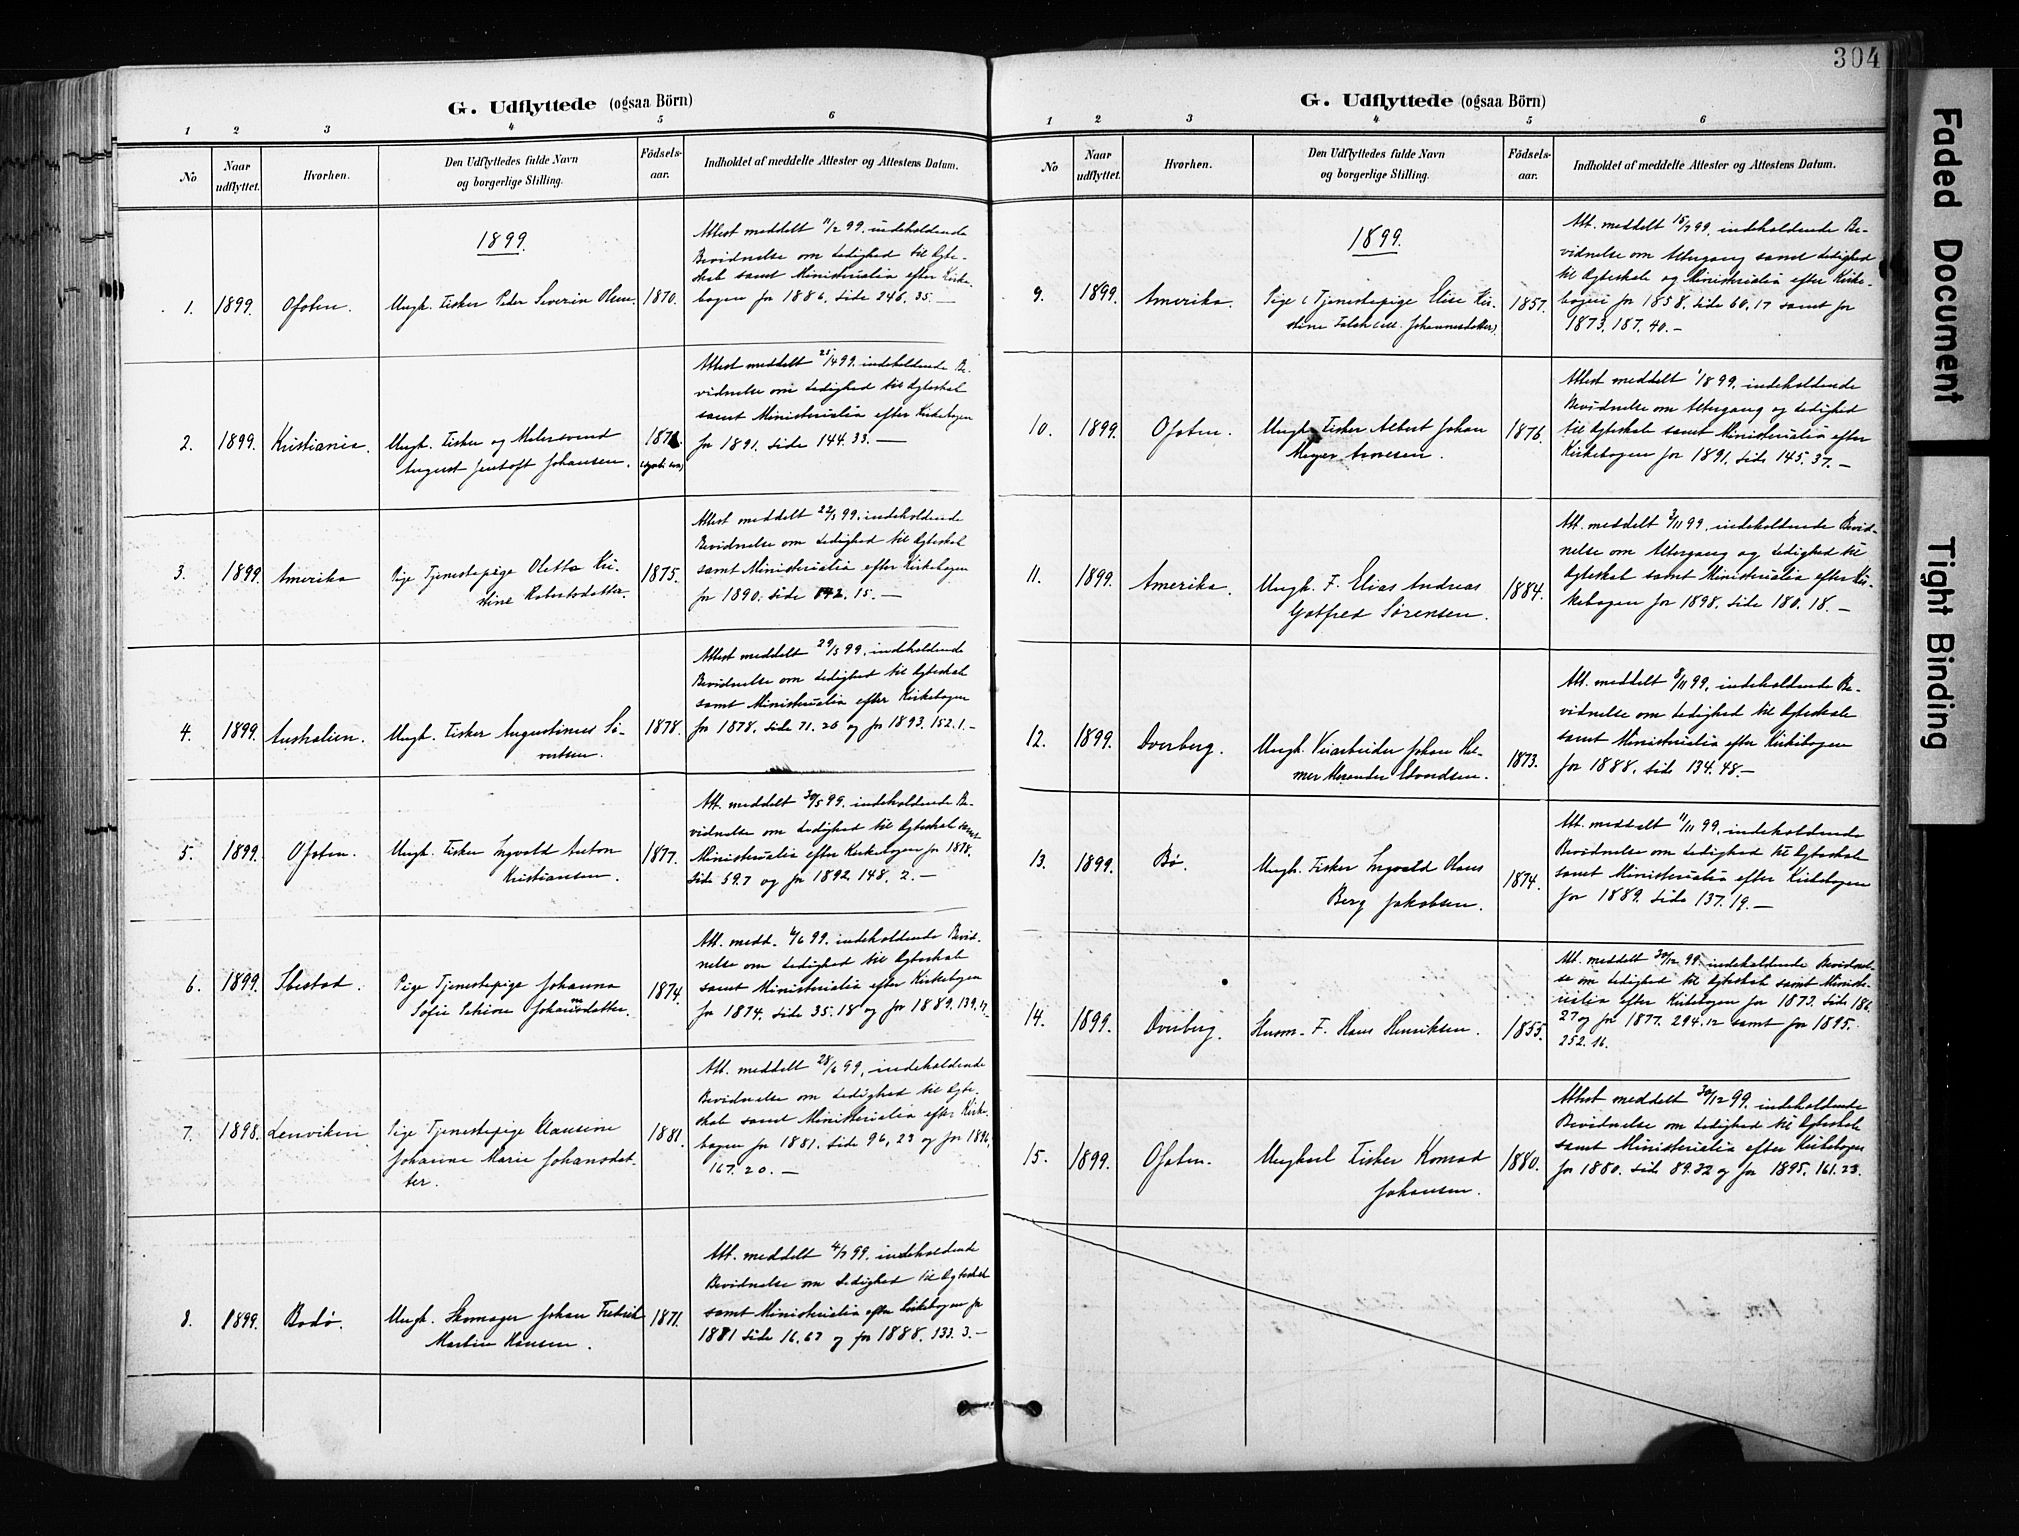 304
Faded Document
Tight Binding
G. Udflyttede (ogsaa Börn)
1 2 3 4 5 6
No
Naar udflyttet.
Hvorhen.
Den Udflyttedes fulde Navn
og borgerlige Stilling.
Fødsels-
aar.
Indholdet af meddelte Attester og Attestens Datum.
1899.
1. 1899. Ofoten. Ungk. Fisker Peder Severin Olsen. 1870.
Attest meddelt 11/2 99. indeholdende
Bevidnelse om Ledighed til Ægte-
skab samt Ministerialia efter Kirke-
bogen for 1886. Side 246. 35. —
2. 1899. Kristiania. Ungk. Fisker og Malersvend
August Jentoft Johansen.
Attest meddelt 25/4 99. indeholdende Be-
vidnelse om Ledighed til Ægteskab
samt Ministerialia efter Kirkebogen
for 1891. Side 144. 33. —
3. 1899. Amerika Pige Tjenestepige Oletta Kri-
stine Robertsdatter. 1875.
Attest meddelt 22/5 99. indeholdende
Bevidnelse om Ledighed til Ægteskab
samt Ministerialia efter Kirkebogen
for 1890. Side 142. 15. —
4. 1899. Australien. Ungk. Fisker Augustinus Si-
vertsen. 1878.
Attest meddelt 29/5 99. indeholdende
Bevidnelse om Ledighed til Ægteskab
samt Ministerialia efter Kirkebogen
for 1878. Side 71. 20 og for 1893. 152. 1. —
5. 1899. Ofoten. Ungk. Fisker Ingvald Anton
Kristiansen. 1877.
Att. meddelt 30/5 99. indeholdende Be-
vidnelse om Ledighed til Ægteskab samt
Ministerialia efter Kirkebogen for 1878.
Side 59. 7 og for 1892. 148. 2. —
6. 1899. Ibestad. Pige Tjenestepige Johanna
Sofie Petrine Johannsdatter. 1874.
Att. medd. 6/6 99. indeholdende Bevid-
nelse om Ledighed til Ægteskab
samt Ministerialia efter Kirkebogen
for 1874. Side 35. 18 og for 1889. 139. 17.
7. 1898. Lenviken Pige Tjenestepige Klausine
Johanne Marie Johansdat-
ter. 1881.
Att. meddelt 28/6 99. indeholdende
Bevidnelse om Ledighed til Ægte-
skab samt Ministerialia efter Kirke-
bogen for 1881. Side 96. 23 og for 1896.
167. 20. —
8. 1899. Bodø. Ungk. Skomager Johan Fredrik
Martin Hansen. 1871.
Att. meddelt 4/7 99. indeholdende
Bevidnelse om Ledighed til Ægteskab
samt Ministerialia efter Kirkebogen for
1881 Side 16. 67 og for 1888. 133. 3. —
G. Udflyttede (ogsaa Börn)
1 2 3 4 5 6
No
Naar udflyttet.
Hvorhen.
Den Udflyttedes fulde Navn
og borgerlige Stilling.
Fødsels-
aar.
Indholdet af meddelte Attester og Attestens Datum.
1899.
9. 1899. Amerika. Pige Tjenestepige Elise Kir-
stine Johannesdatter). 1857.
Att. meddelt 15/7 99. indeholdende Be-
vidnelse om Altergang samt Ledighed
til Ægteskab og Ministerialia efter Kirke-
bogen for 1858. Side 60. 17 samt for
1873. 187. 40. —
10. 1899. Ofoten. Ungk. Fisker Albert Johan
Meyer Arnesen. 1876.
Attest meddelt 1/8 99. indeholdende
Bevidnelse om Altergang og Ledighed
til Ægteskab samt Ministerialia efter
Kirkebogen for 1891. Side 145. 37. —
11. 1899. Amerika. Ungk. F. Elias Andreas
Gotfred Sørensen. 1884.
Att. meddelt 3/11 99. indeholdende Bevid-
nelse om Altergang og Ledighed til
Ægteskab samt Ministerialia efter Kir-
kebogen for 1898. Side 180. 18. —
12. 1899. Dverberg. Ungk. Veiarbeider Johan Hel-
mer Alexander Edvardsen. 1873.
Att. meddelt 8/11 99. indeholdende Be-
vidnelse om Ledighed til Ægteskab
samt Ministerialia efter Kirkebogen
for 1888. Side 134. 48. —
13. 1899. Bø. Ungk. Fisker Ingvald Olaus
Berg Jakobsen. 1874.
Att. meddelt 11/11 99. indeholdende
Bevidnelse om Ledighed til Ægteskab
samt Ministerialia efter Kirkebogen
for 1889. Side 137. 19. —
14. 1899. Dverberg. Enkem. F. Hans Henriksen. 1855.
Att. meddelt 30/12 99. indeholdende Bevidnel-
se om Ledighed til Ægteskab samt Ministe-
rialia efter Kirkebogen for 1873. Side 186.
27 og for 1877. 294. 12 samt for 1895.
252. 16.
15. 1899. Ofoten. Ungkarl Fisker Konrad
Johansen. 1880.
Attest meddelt 30/12 99. indeholdende
Bevidnelse om Ledighed til Ægteskab
samt Ministerialia efter Kirkebogen
for 1880. Side 89. 32 og for 1895. 161. 23.